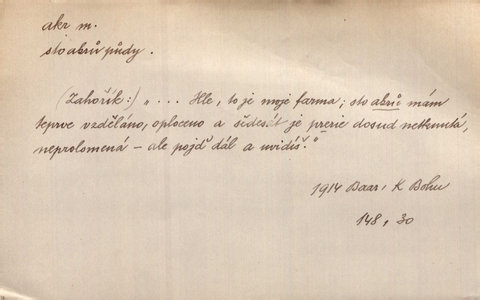 akr m.
sto akrů půdy.
(Zahořík:) „.... Hle, to je moje farma; sto akrů mám
teprve vzděláno, oploceno a šedesát je prerie dosud netknutá,
neprolomená – ale pojď dál a uvidíš."
1914 Baar, K Bohu
148, 30